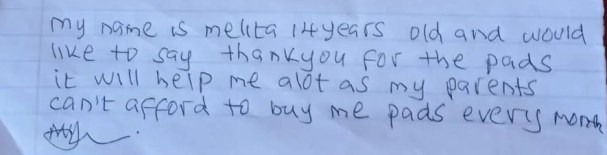 my name is melita 14years old and would
like to say thankyou for the pads
it will help me alot as my parents
can't afford to buy me pads every month